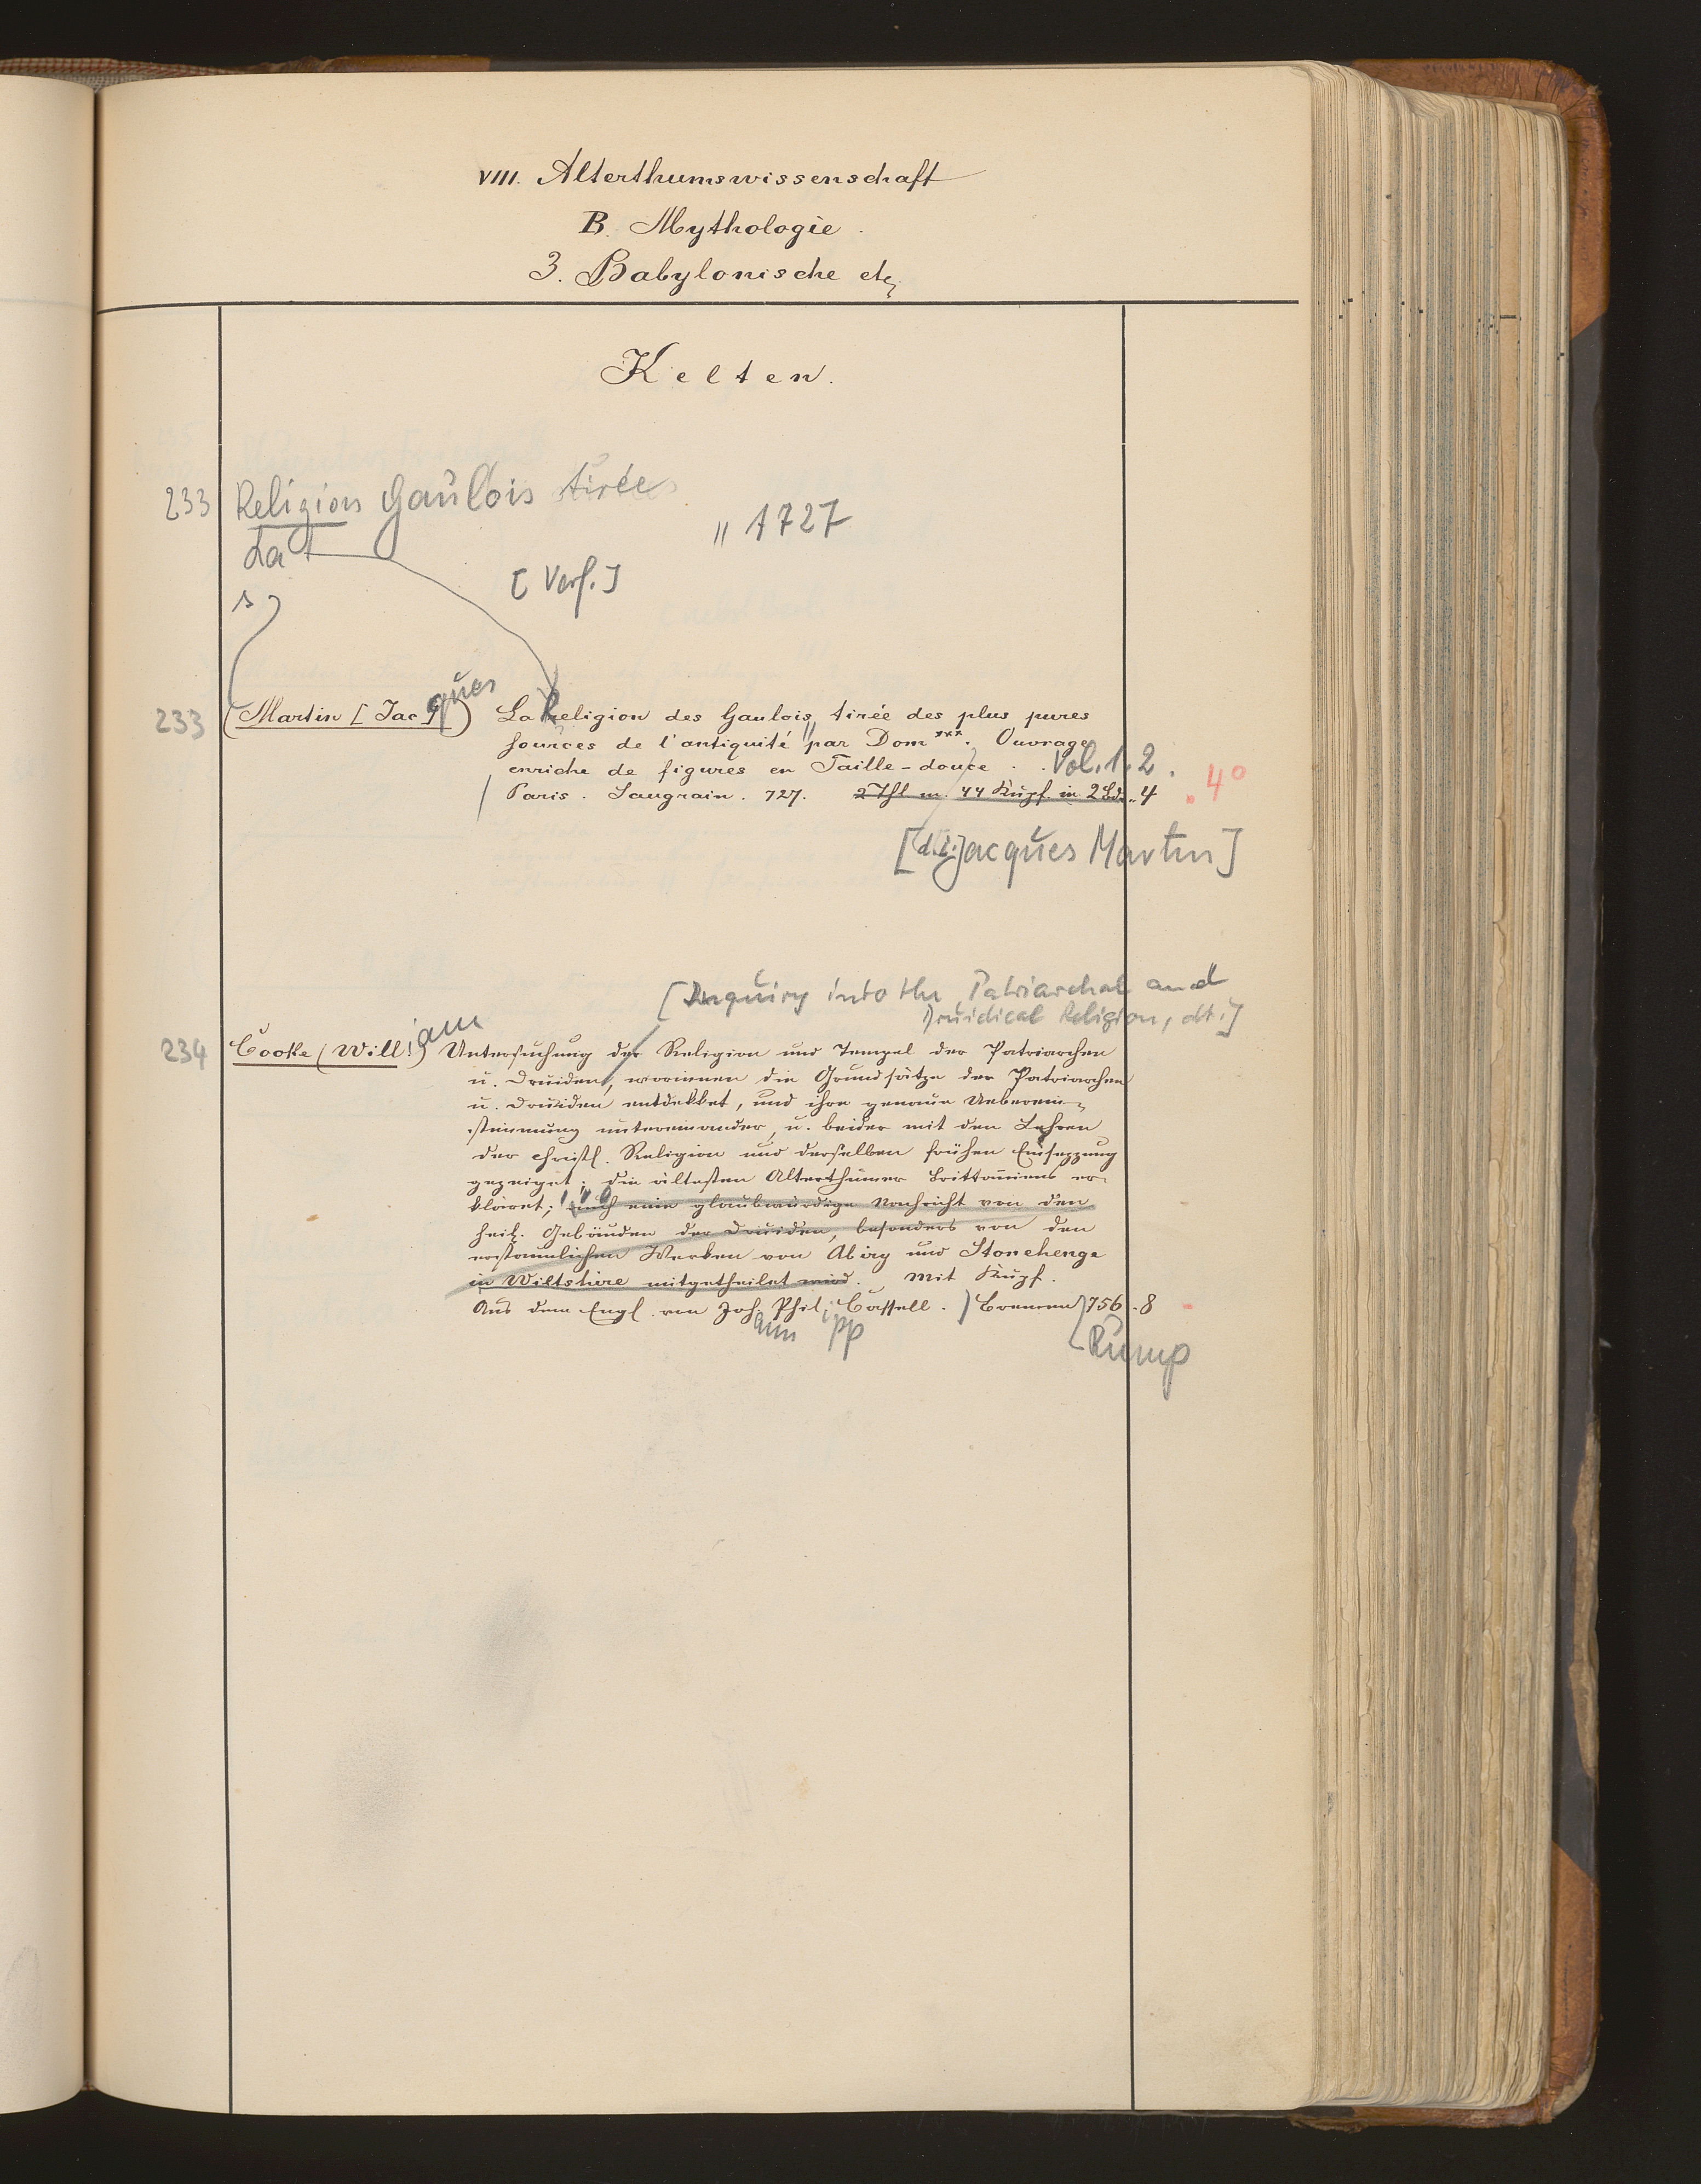 VIII. Alterthumswissenschaft
B. Mythologie.
3. Babylonische etc
Kelten.
233 Religion Gaulois tirée
La
" 1727
[Verf.]
s
233 (Martin [Jacques]) La Religion des Gaulois, tirée des plus pures
sources de l'antiquité par Dom ***. Ouvrage
enriche de figures en Taille-douce. Vol. 1.2.
Paris. Saugrain. 727. 2 Thl m. 44 Kupf. in 2 Bdn. 4 4°
[d.i. Jacques Martin]
[Inquiry into the Patriarchal and
Druidical Religion, dt.]
234 Cooke (William) Untersuchung der Religion und Tempel der Patriarchen
u. Druiden, worinnen die Grundsätze der Patriarchen
u. Druiden entdekket, und ihre genaue Ueberein-
stimmung untereinander, u. beider mit den Lehren
der christl. Religion und derselben frühen Einsezzung
gezeiget; die ältesten Alterthümer Brittanniens er-
kläret; auch eine glaubwürdige Nachricht von den
heil. Gebäuden der Druiden, besonders von den
erstaunlichen Werken von Abiry und Stonehenge
in Wiltshire mitgetheilet wird. Mit Kupf.
Aus dem Engl. von Johann Philipp Cassell. Bremen 756. 8
Rump